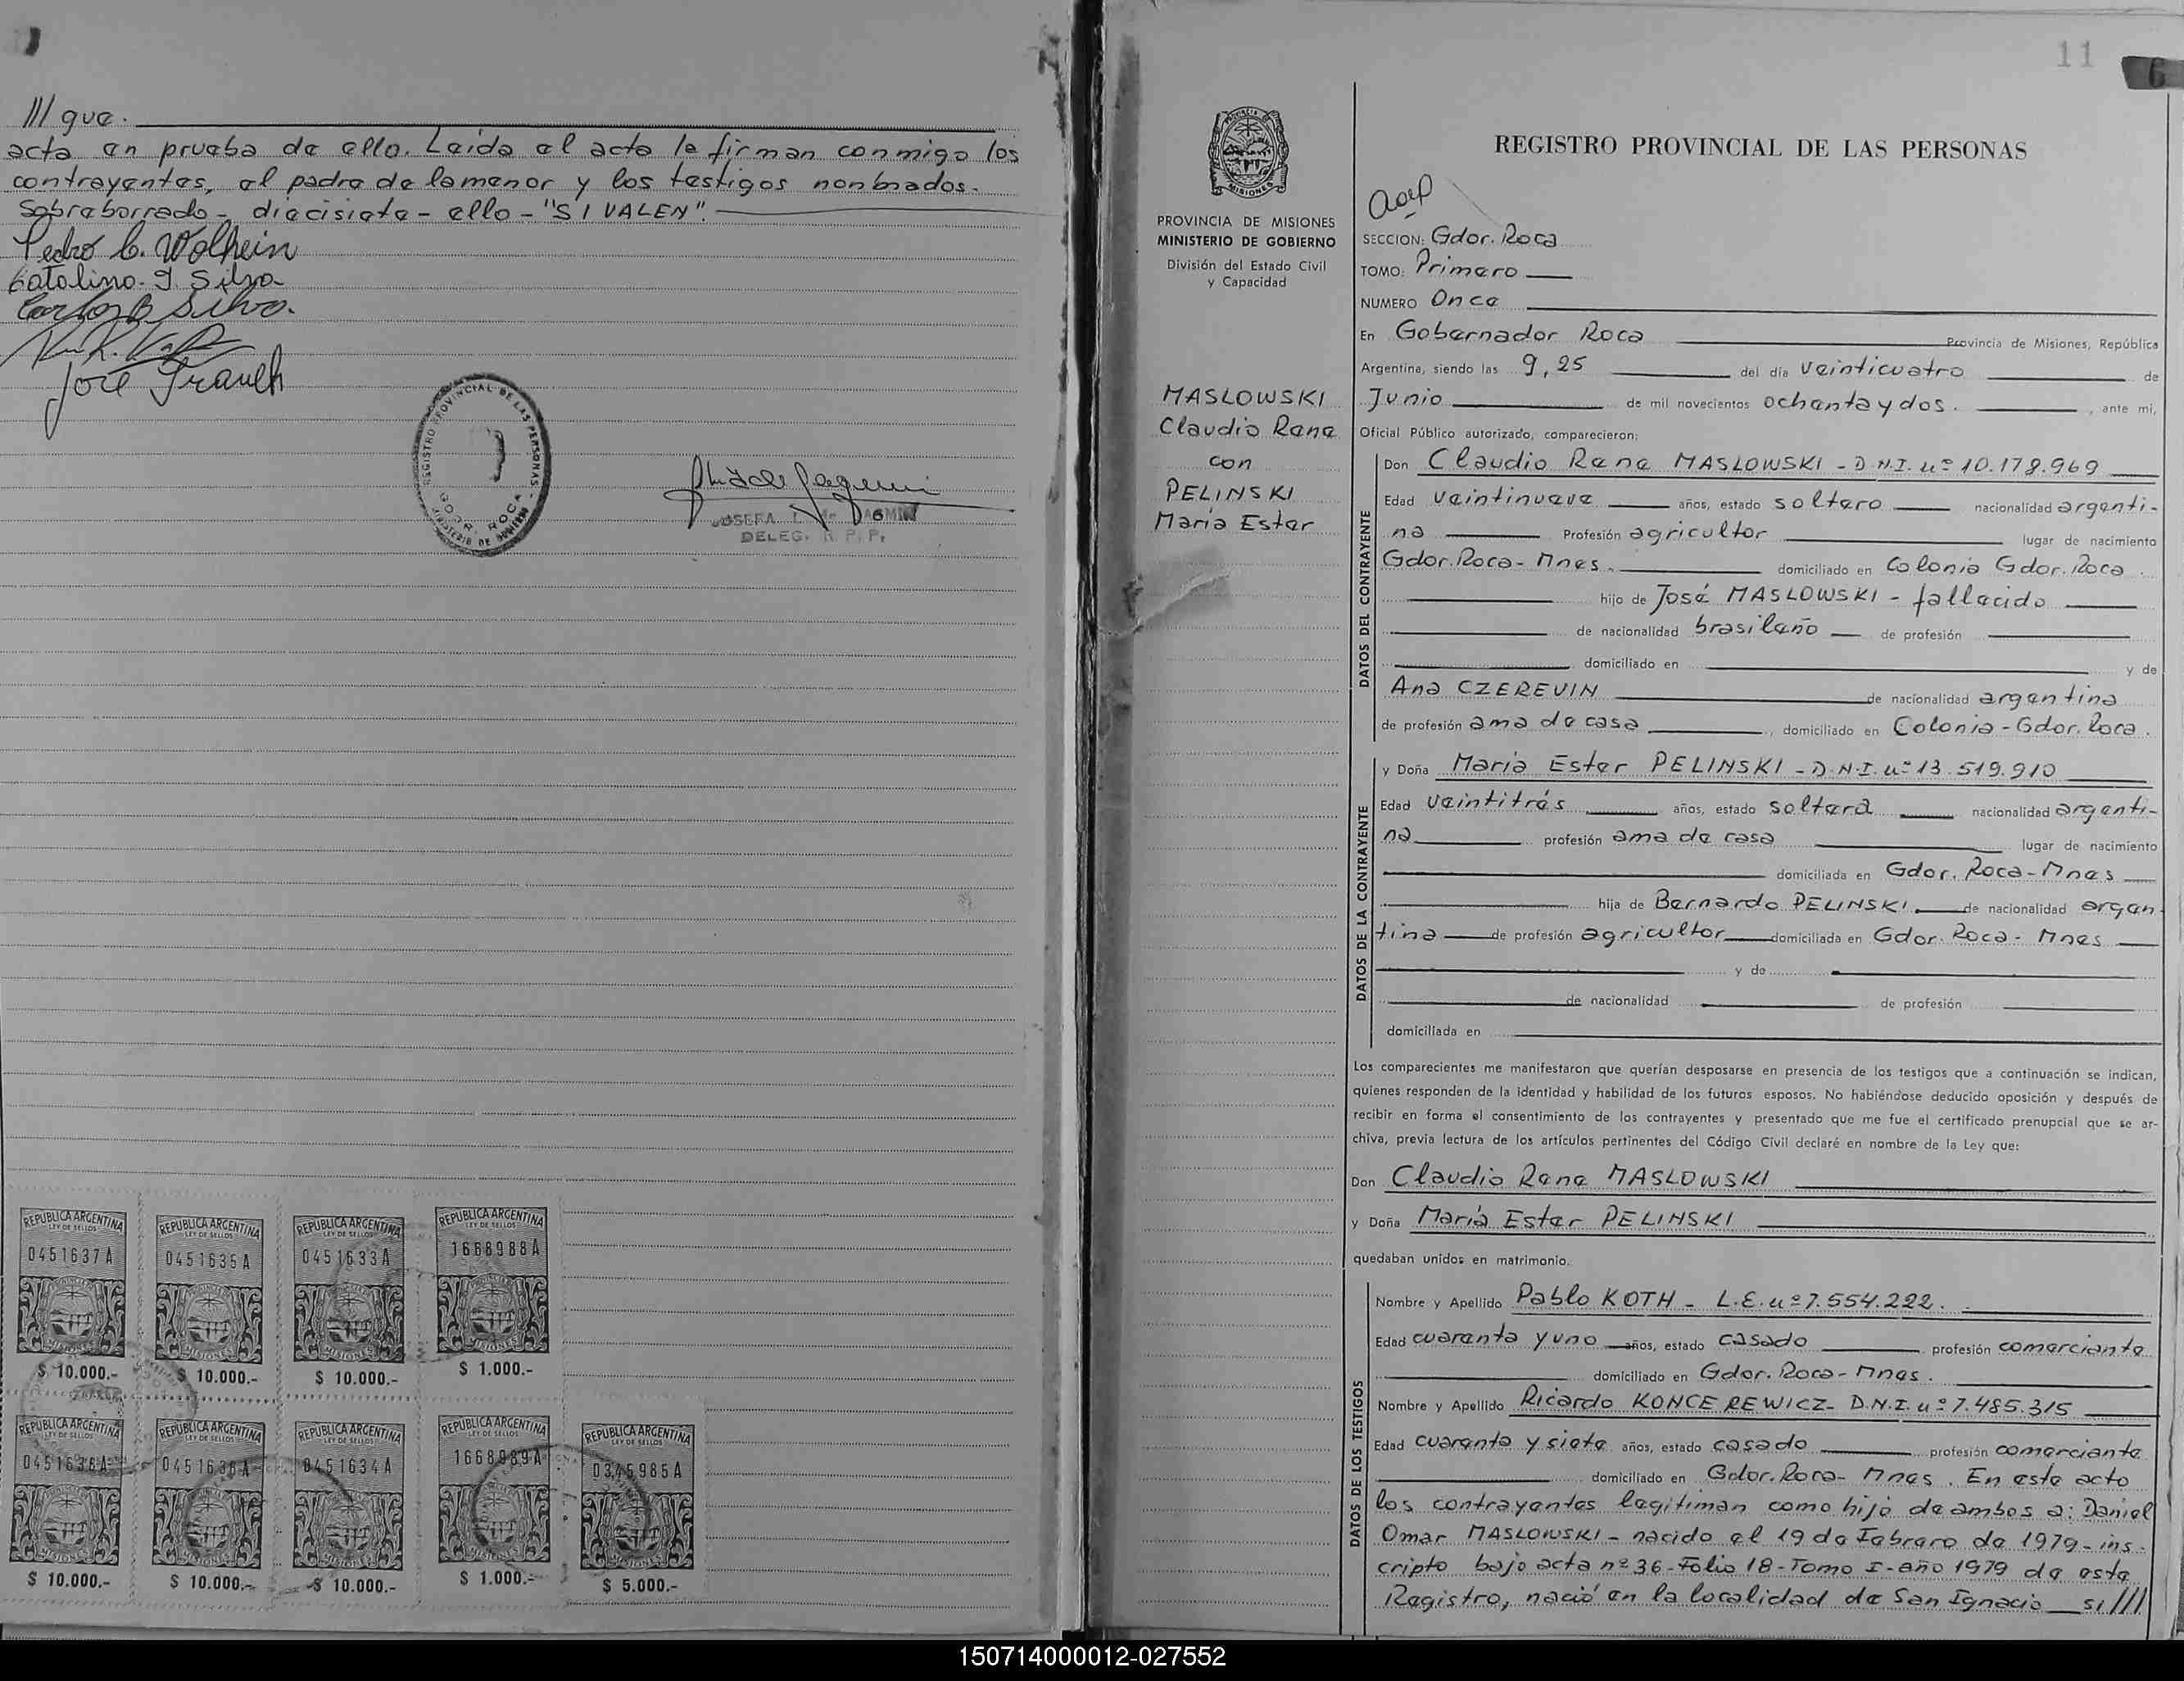 /// que.
acta en prueba de ello. Leida el acta la firman conmigo los
contrayentes, el padre de la menor y los testigos nonbrados.
Sobreborrado - diecisiete - ello - "SI VALEN".
Pedro C. Wolhein
Catalino. J. Silva
Carlos B Silva.
José Trauch
REGISTRO PROVINCIAL DE LAS PERSONAS
GDOR. ROCA
MINISTERIO DE GOBIERNO
JOSEFA
DELEG. R. P. P.
REPUBLICA ARGENTINA REPUBLICA ARGENTINA REPUBLICA ARGENTINA REPUBLICA ARGENTINA
LEY DE SELLOS LEY DE SELLOS LEY DE SELLOS LEY DE SELLOS
0451637A 0451635A 0451633A 1668988A
MISIONES MISIONES MISIONES MISIONES
$ 10.000.- $ 10.000.- $ 10.000.- $ 1.000.-
REPUBLICA ARGENTINA REPUBLICA ARGENTINA REPUBLICA ARGENTINA REPUBLICA ARGENTINA REPUBLICA ARGENTINA
LEY DE SELLOS LEY DE SELLOS LEY DE SELLOS LEY DE SELLOS LEY DE SELLOS
0451634A 1668989A 0345985A
MISIONES MISIONES MISIONES MISIONES MISIONES
$ 10.000.- $ 10.000.- $ 10.000.- $ 1.000.- $ 5.000.-
11
6
MISIONES
PROVINCIA DE MISIONES
MINISTERIO DE GOBIERNO
División del Estado Civil
y Capacidad
MASLOWSKI
Claudio Rene
con
PELINSKI
María Ester
REGISTRO PROVINCIAL DE LAS PERSONAS
SECCION: Gdor. Roca
TOMO: Primero
NUMERO Once
En Gobernador Roca Provincia de Misiones, República
Argentina, siendo las 9,25 del día veinticuatro de
Junio de mil novecientos ochenta y dos. , ante mi,
Oficial Público autorizado, comparecieron:
DATOS DEL CONTRAYENTE
Don Claudio Rene MASLOWSKI - D.N.I. nº 10.178.969
Edad veintinueve años, estado soltero nacionalidad argenti-
na Profesión agricultor lugar de nacimiento
Gdor. Roca - Mnes. domiciliado en Colonia Gdor. Roca.
hijo de José MASLOWSKI - fallecido
de nacionalidad brasileño de profesión
domiciliado en y de
Ana CZEREVIN de nacionalidad argentina
de profesión ama de casa , domiciliado en Colonia - Gdor. Roca.
DATOS DE LA CONTRAYENTE
y Doña María Ester PELINSKI - D.N.I. nº 13.519.910
Edad veintitrés años, estado soltera nacionalidad argenti-
na profesión ama de casa lugar de nacimiento
domiciliada en Gdor. Roca - Mnes
hija de Bernardo PELINSKI de nacionalidad argen-
tina de profesión agricultor domiciliada en Gdor. Roca - Mnes
y de
de nacionalidad de profesión
domiciliada en
Los comparecientes me manifestaron que querían desposarse en presencia de los testigos que a continuación se indican,
quienes responden de la identidad y habilidad de los futuros esposos. No habiéndose deducido oposición y después de
recibir en forma el consentimiento de los contrayentes y presentado que me fue el certificado prenupcial que se ar-
chiva, previa lectura de los artículos pertinentes del Código Civil declaré en nombre de la Ley que:
Don Claudio Rene MASLOWSKI
y Doña María Ester PELINSKI
quedaban unidos en matrimonio.
DATOS DE LOS TESTIGOS
Nombre y Apellido Pablo KOTH - L.E. nº 7.554.222.
Edad cuarenta y uno años, estado casado profesión comerciante
domiciliado en Gdor. Roca - Mnes.
Nombre y Apellido Ricardo KONCEREWICZ - D.N.I. nº 7.485.315
Edad cuarenta y siete años, estado casado profesión comerciante
domiciliado en Gdor. Roca - Mnes. En este acto
los contrayentes legitiman como hijo de ambos a: Daniel
Omar MASLOWSKI - nacido el 19 de Febrero de 1979 - ins-
cripto bajo acta nº 36 - Folio 18 - Tomo I - año 1979 de este
Registro, nació en la localidad de San Ignacio si ///
150714000012-027552